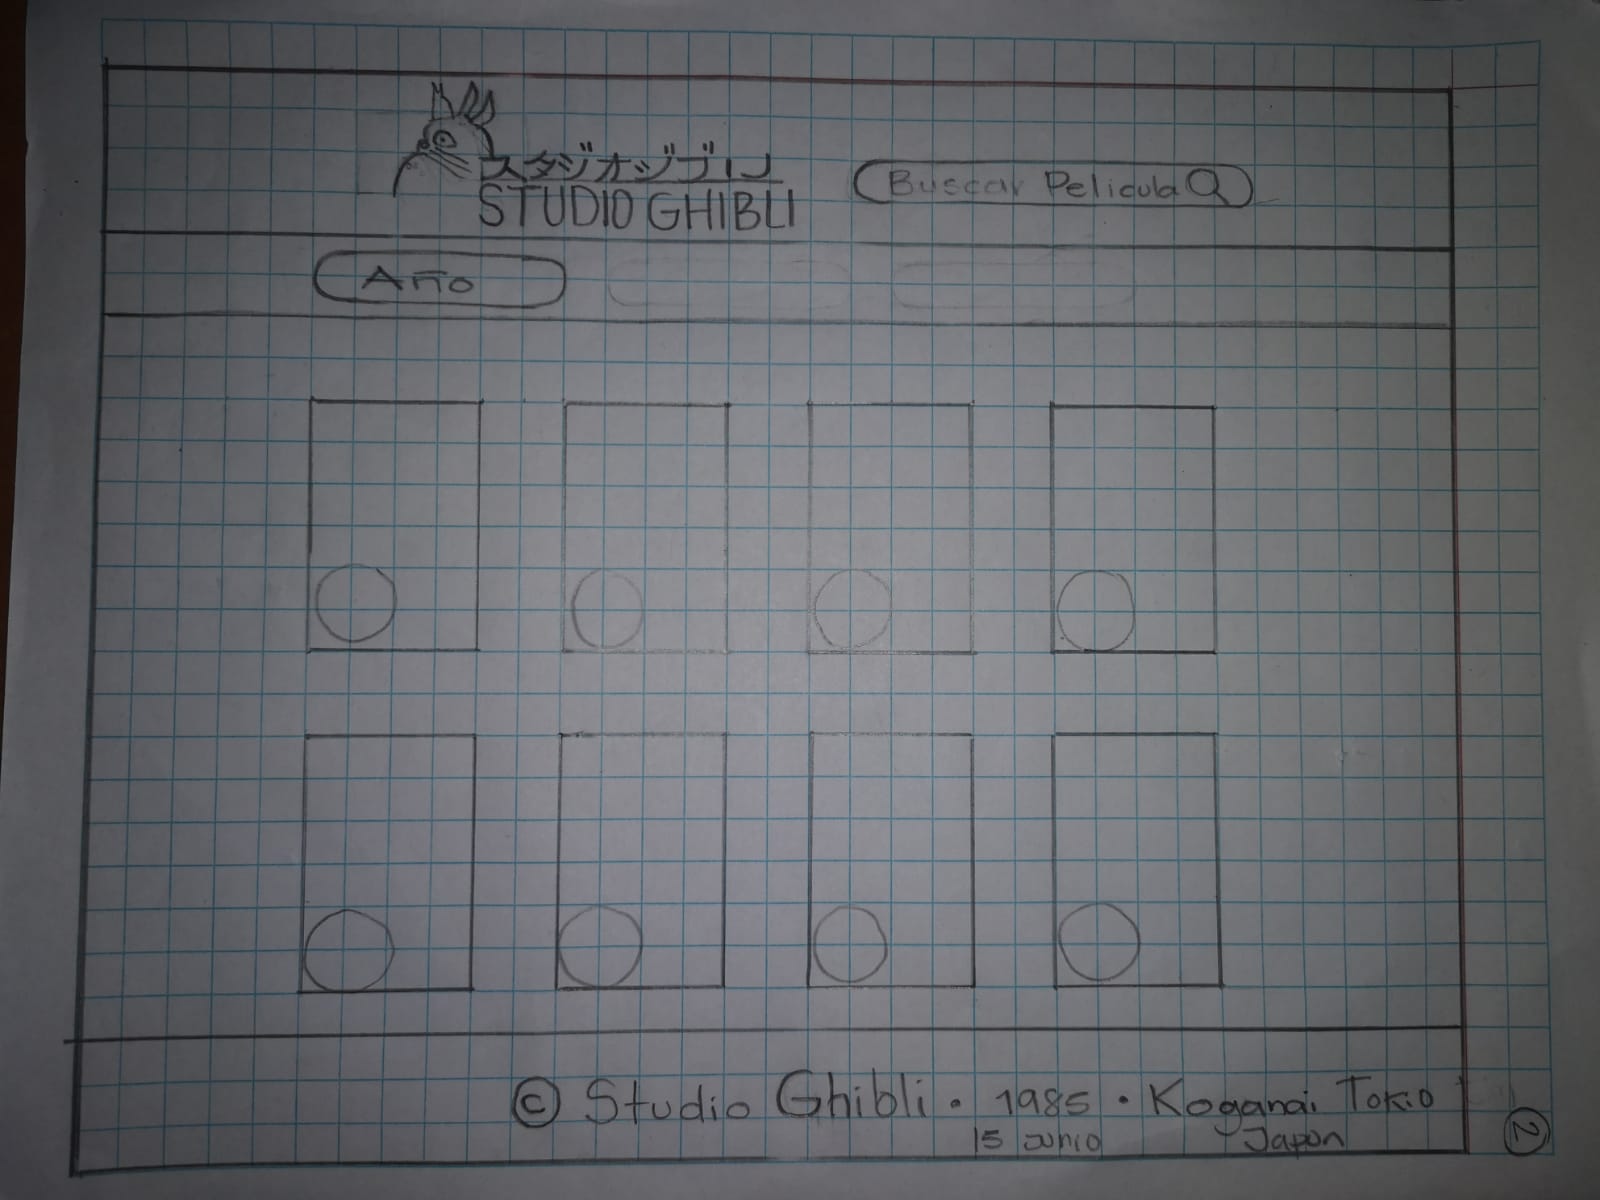 スタジオジブリ
STUDIO GHIBLI
Buscar Pelicula
Año
© Studio Ghibli . 1985 . Koganai Tokio
15 Junio Japón
2